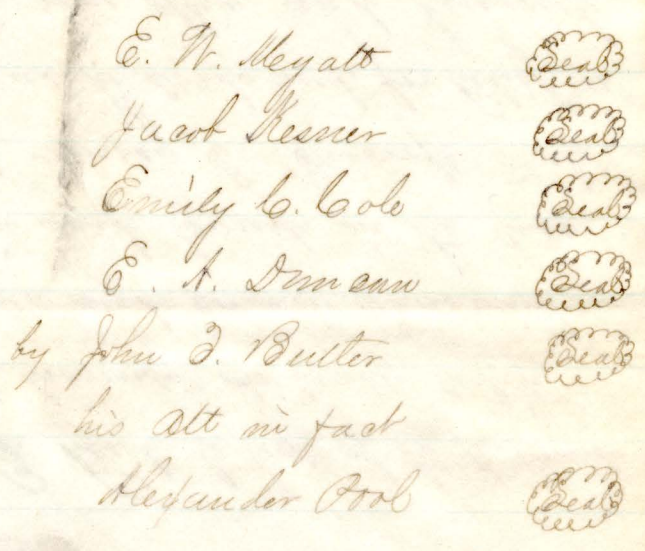 E. W. Meyatt Seal
Jacob Kesner Seal
Emily C. Cole Seal
E. A. Duncan Seal
by John F. Butter Seal
his Att in fact
Alexander Pool Seal